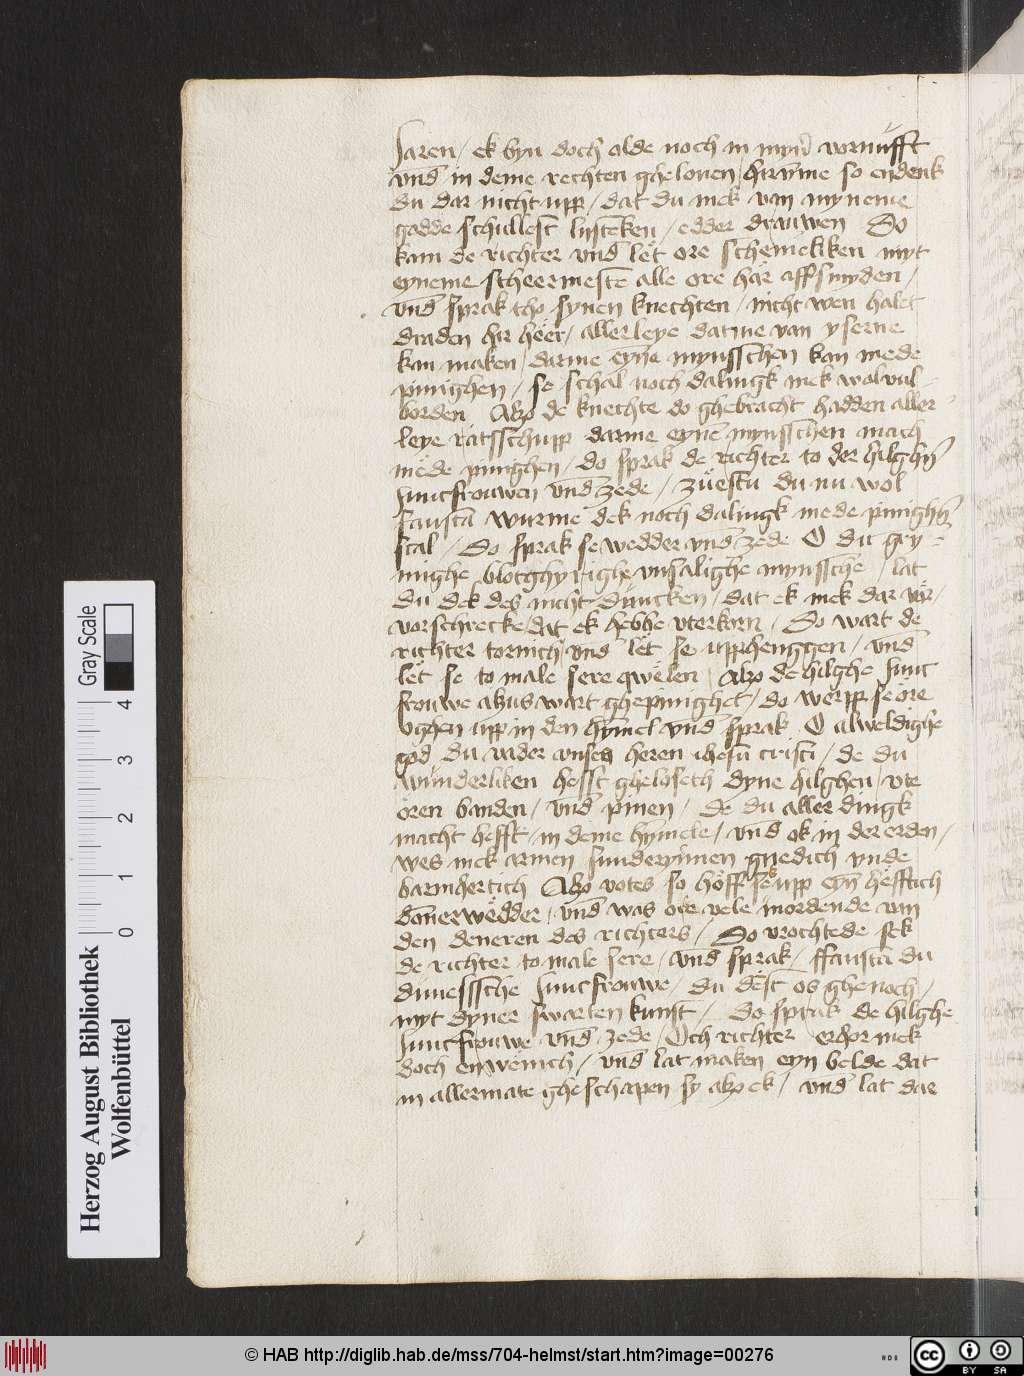 Jaren / ek byn doch alde noch in myn̄ vornufft
vnd̄ in deme rechten ghelouen / hirūme so endenk
du dar nicht upp / dat du mek van myneme
godde schullest lysteken / edder drauwen Do
kam de richter vnd̄ let ore schemeliken myt
eyneme scheermeste alle ore har affsnyden /
vnd̄ sprak tho synen knechten / nicht wen halet
draden hir heer / allerleye datme van yserne
kan maken / darme eyne mynsschen kan mede
pinighen / se schal noch dalingk mek wol vul-
borden Alzo de knechte do ghebracht hadden aller-
leye ratsschupp darme eynē mynsschen mach
mede pinighen / do sprak de richter to der hilghen̄
Juncfrouwen vnd̄ zede / zuestu du nu wol
fausta wurme dek noch dalingk mede pinighen̄
scal / Do sprak se wedder vnd̄ zede O du gry-
nnighe blotghyrighe vnsalighe mynssche / lat
du dek des nicht duncken / dat ek mek dar vor /
vorschrecke / dat ek hebbe vterkorn / Do wart de
richter tornich vnd̄ let se upphenggen / vnd̄
let se to male sere qwelen / Alzo de hilghe Junc
frouwe alzus wart ghepinighet / do worpp se ore
oghen upp in den hymel vnd̄ sprak O alweldighe
god du vader vnses heren ihesu cristi / de du
wunderliken hefft gheloseth dyne hilghen / vte
oren banden / vnd̄ pinen / De du aller dingk
macht hefft / in deme hymele / vnd̄ ok in der erden /
wes mek armen sunderynnen gnedich vnde
barmhertich Alzo votes so hoff sek upp eyn hefftich
donnerwedder / vnd̄ was ore vele mordende van
den deneren des richters / Do vrochtede sek
de richter to male sere / vnd̄ sprak / ffausta du
duuelssche Juncfrouwe / du dest os ghenoch /
myt dyner swarten kunst / Do sprak de hilghe
Juncfrouwe vnd̄ zede / Och richter erhor mek
doch en wenich / vnd̄ lat maken eyn belde dat
in allermate gheschapen sy alzo ek / vnd̄ lat dar
Gray Scale
0 1 2 3 4
Herzog August Bibliothek
Wolfenbüttel
© HAB http://diglib.hab.de/mss/704-helmst/start.htm?image=00276
HAB
cc BY SA